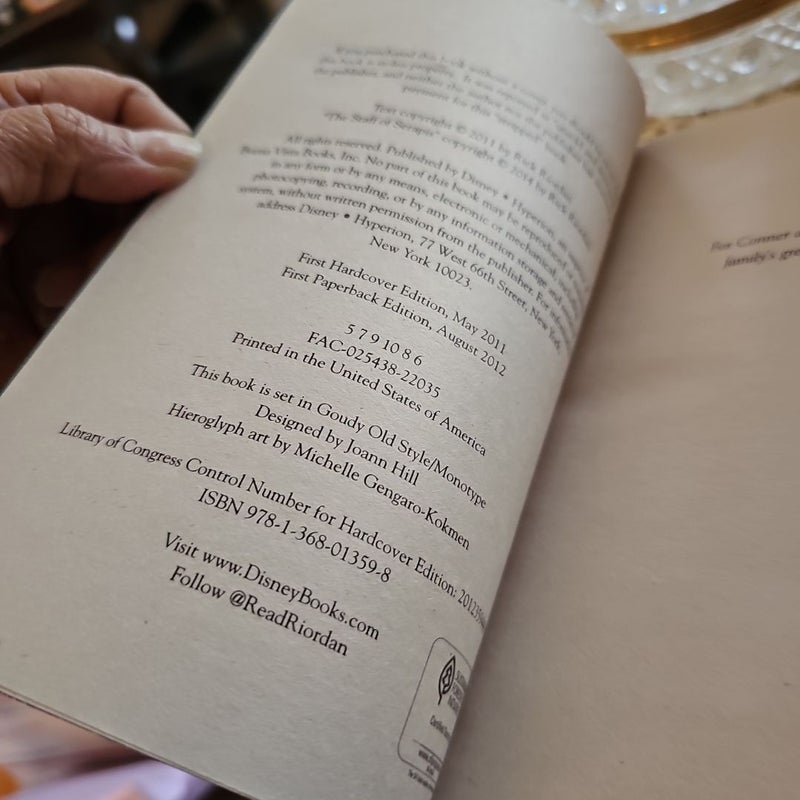 If you purchased this book without a cover,
this book is stolen property. It was reported
the publisher, and neither the author nor the publisher
payment for this "stripped" book.
Text copyright © 2011 by Rick Riordan
"The Staff of Serapis" copyright © 2014 by Rick Riordan
All rights reserved. Published by Disney • Hyperion, an
Buena Vista Books, Inc. No part of this book may be reproduced
in any form or by any means, electronic or mechanical,
photocopying, recording, or by any information storage and
system, without written permission from the publisher. For
address Disney • Hyperion, 77 West 66th Street, New York,
New York 10023.
First Hardcover Edition, May 2011
First Paperback Edition, August 2012
5 7 9 10 8 6
FAC-025438-22035
Printed in the United States of America
This book is set in Goudy Old Style/Monotype
Designed by Joann Hill
Hieroglyph art by Michelle Gengaro-Kokmen
Library of Congress Control Number for Hardcover Edition:
ISBN 978-1-368-01359-8
Visit www.DisneyBooks.com
Follow @ReadRiordan
For Conner
family's